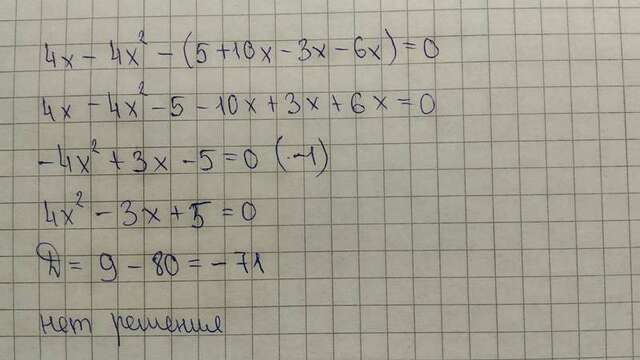 4x - 4x² - (5 + 10x - 3x - 6x) = 0
4x - 4x² - 5 - 10x + 3x + 6x = 0
-4x² + 3x - 5 = 0 (·-1)
4x² - 3x + 5 = 0
D = 9 - 80 = -71
нет решения